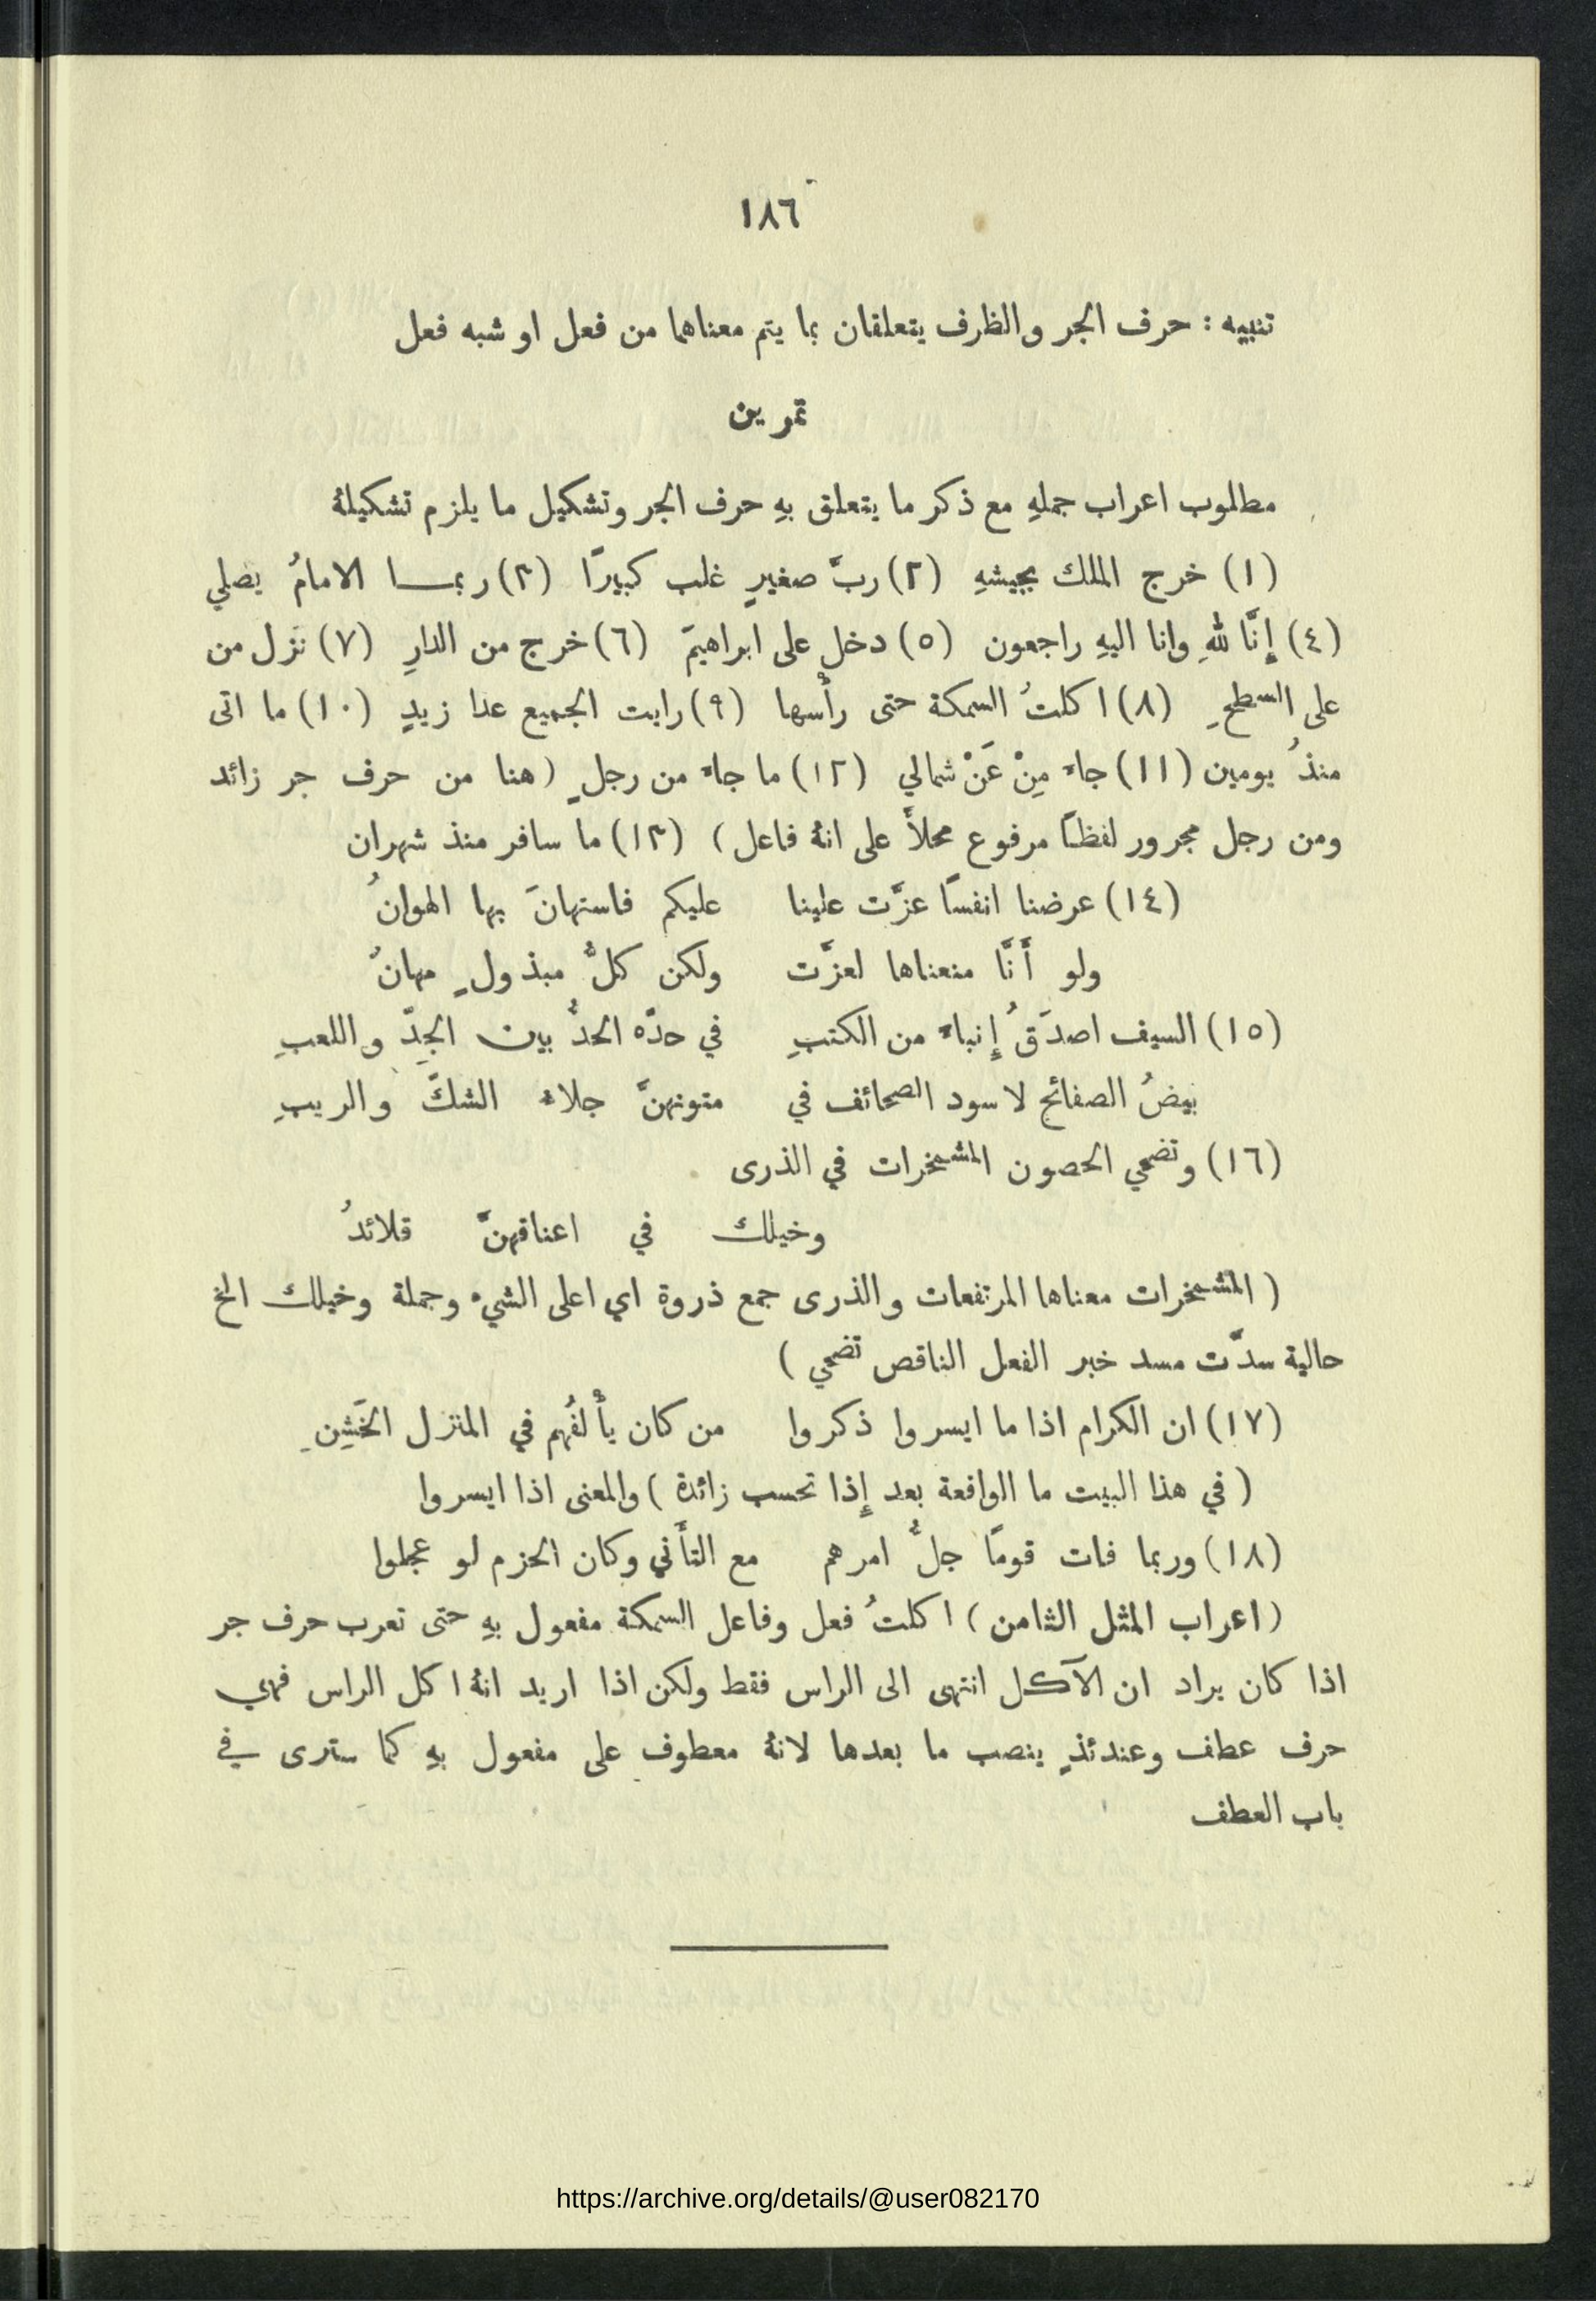 ١٨٦
تنبيه : حرف الجر والظرف يتعلقان بما يتم معناهما من فعل او شبه فعل
تمرين
مطلوب اعراب جملهِ مع ذكر ما يتعلق بهِ حرف الجر وتشكيل ما يلزم تشكيلهُ
(١) خرج الملك بجيشهِ (٢) ربَّ صغيرٍ غلب كبيرًا (٣) ربمـا الامامُ يصلي
(٤) إِنَّا للهِ وانا اليهِ راجعون (٥) دخل على ابراهيمَ (٦) خرج من الدارِ (٧) نزل من
على السطحِ (٨) اكلتُ السمكة حتى رأْسها (٩) رايت الجميع عدا زيدٍ (١٠) ما اتى
منذُ يومين (١١) جاءَ مِنْ عَنْ شمالي (١٢) ما جاءَ من رجلٍ (هنا من حرف جر زائد
ومن رجل مجرور لفظـًا مرفوع محلاً على انهُ فاعل) (١٣) ما سافر منذ شهران
(١٤) عرضنا انفسًا عزَّت علينا عليكم فاستهانَ بها الهوانُ
ولو أَنَّا منعناها لعزَّت ولكن كلُّ مبذولٍ مهانُ
(١٥) السيف اصدَقُ إِنباءً من الكتبِ في حدّه الحدُّ بين الجِدّ واللعبِ
بيضُ الصفائح لا سود الصحائف في متونهنَّ جلاءُ الشكّ والريبِ
(١٦) وتضحي الحصون المشمخرات في الذرى
وخيلك في اعناقهنَّ قلائدُ
( المشمخرات معناها المرتفعات والذرى جمع ذروة اي اعلى الشيءِ وجملة وخيلك الخ
حالية سدَّت مسد خبر الفعل الناقص تضحي )
(١٧) ان الكرام اذا ما ايسروا ذكروا من كان يأْلفُهم في المنزل الخَشِنِ
( في هذا البيت ما الواقعة بعد إِذا تحسب زائدة ) والمعنى اذا ايسروا
(١٨) وربما فات قومًا جلُّ امرهم مع التأَني وكان الحزم لو عجلوا
( اعراب المثل الثامن ) اكلتُ فعل وفاعل السمكة مفعول بهِ حتى تعرب حرف جر
اذا كان يراد ان الآكل انتهى الى الراس فقط ولكن اذا اريد انهُ اكل الراس فهي
حرف عطف وعندئذٍ ينصب ما بعدها لانهُ معطوف على مفعول بهِ كما سترى في
باب العطف
https://archive.org/details/@user082170